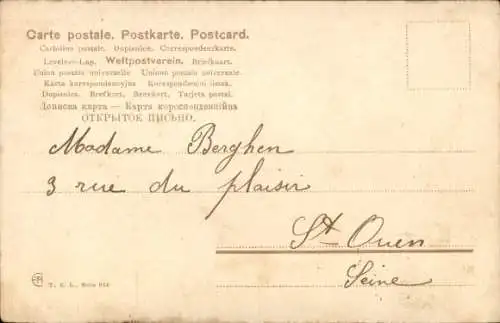 Carte postale. Postkarte. Postcard.
Cartolina postale. Dopisnice. Correspondenzkarte.
Levelező-Lap. Weltpostverein. Briefkaart.
Union postale universelle. Unione postale universale.
Karta korespondencyjna Korespondenční lístek.
Dopisnica. Brefkort. Brevkort. Tarjeta postal.
Дописна карта — Карта кореспонденційна
ОТКРЫТОЕ ПИСЬМО.
Madame Berghen
3 rue du plaisir
St Ouen
Seine
T. S. L., Serie 944